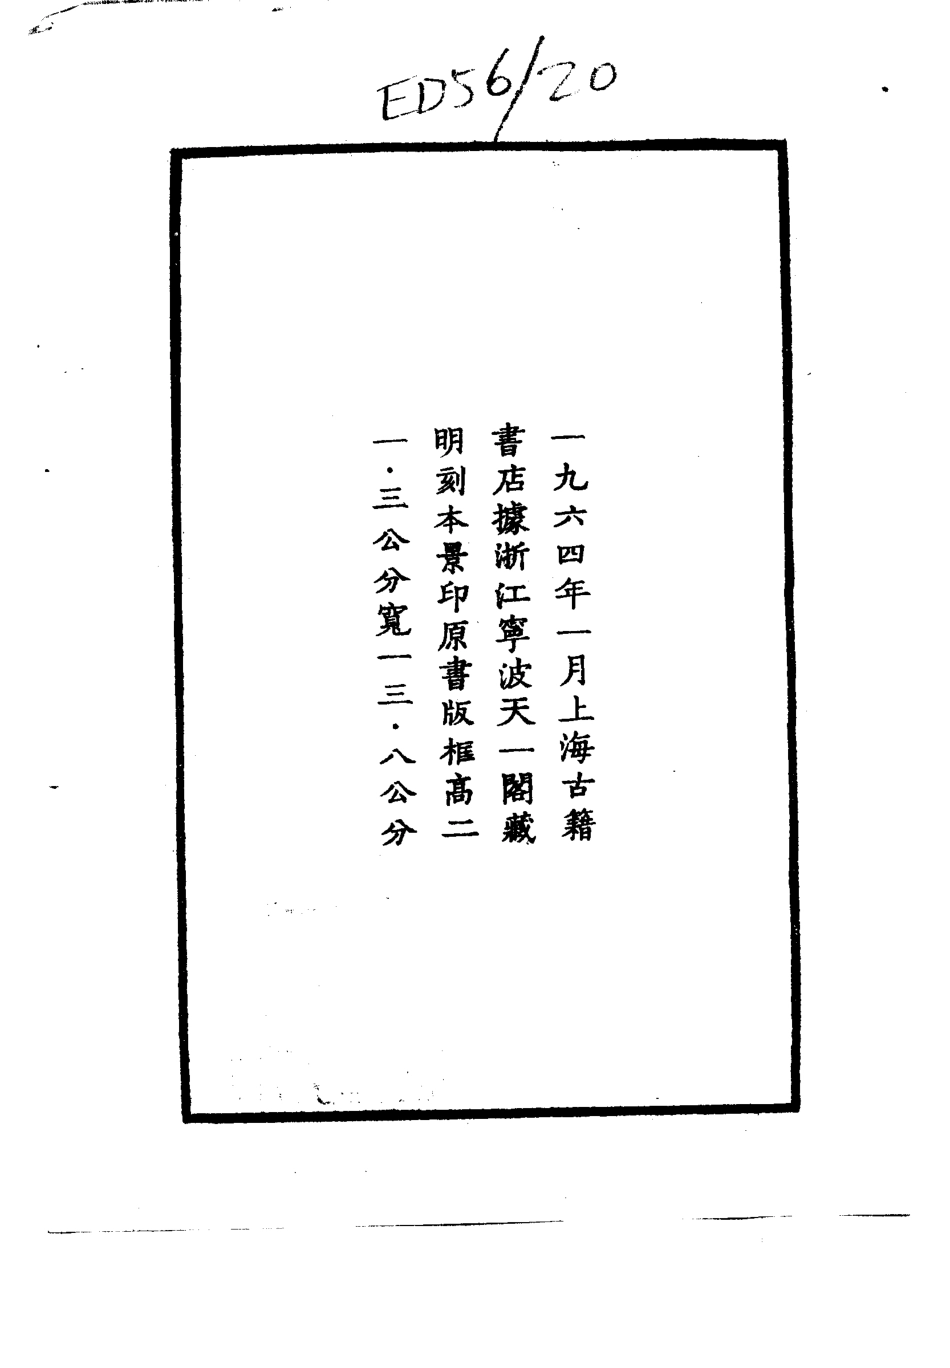 ED56/20
一九六四年一月上海古籍
書店據浙江寧波天一閣藏
明刻本景印原書版框高二
一·三公分寬一三·八公分